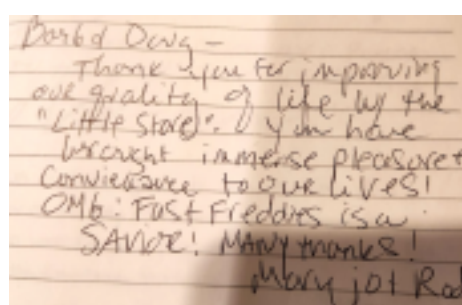 Barb & Doug -
Thank you for improving
our quality of life by the
"Little Store". You have
brought immense pleasure +
Convieasure to our lives!
OMG: Fast Freddies is a
SAVIOR! MANY thanks!
Mary jo + Rod